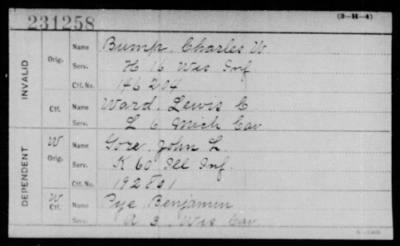 231258
(3-H-4)
INVALID
Orig. Name Bump, Charles W
Serv. H 16 Wis Inf
Ctf. No. 146204
Ctf. Name Ward, Lewis C
Serv. L 6 Mich Cav
DEPENDENT
W Orig. Name Gore, John L.
Serv. K 60 Ill Inf.
Ctf. No. 192861
W Ctf. Name Pye Benjamin
Serv. A 3 Wis Cav